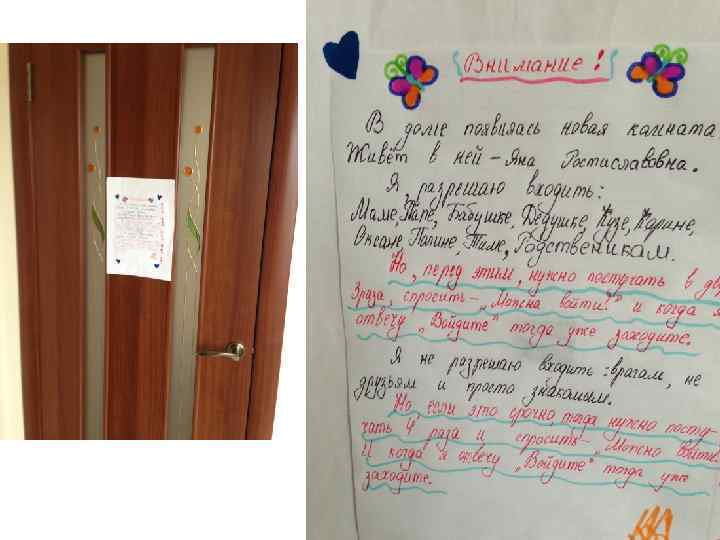 Внимание!
В доме появилась новая комната.
Живёт в ней – Яна Ростиславовна.
Я, разрешаю входить:
Маме, Папе, Бабушке, Дедушке, Карине,
Оксане, Полине, Тиме, Родственикам.
Но, перед этим, нужно постучать в
3 раза, спросить – „Можно войти?" и когда я
отвечу „Войдите" тогда уже заходите.
Я не разрешаю входить: врагам, не
друзьям и просто знакомым.
Но если это срочно, тогда нужно посту-
чать 4 раза и спросить – „Можно войти
И когда я отвечу „Войдите" тогда уже
заходите.